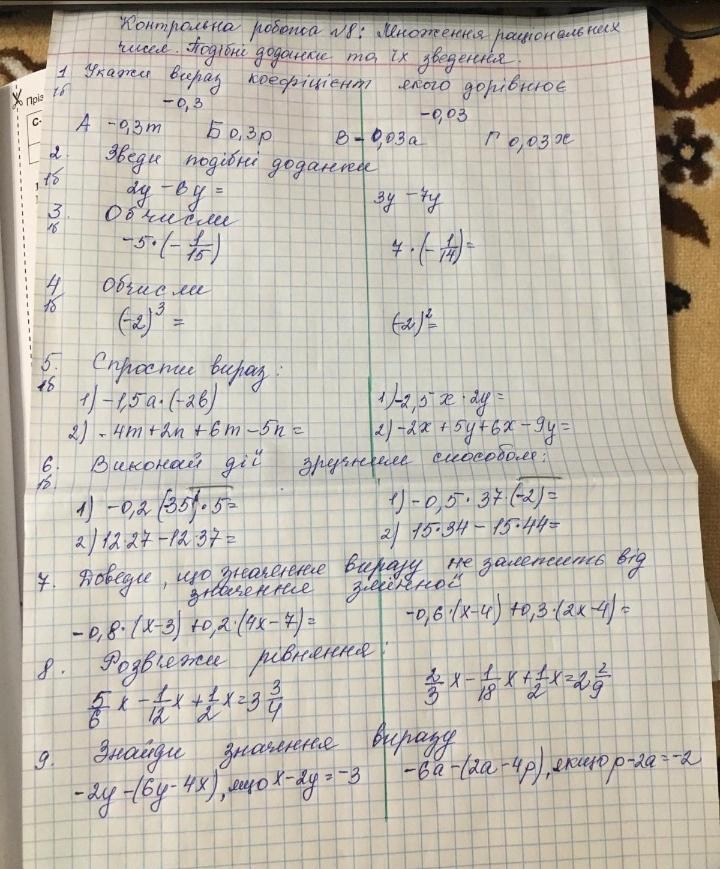 Контрольна робота №8: Множення раціональних
чисел. Подібні доданки та їх зведення.
1 Укажи вираз коефіцієнт якого дорівнює
1б -0,3 -0,03
А -0,3m Б 0,3p В -0,03a Г 0,03x
2. Зведи подібні доданки
1б 2y - 6y = 3y - 7y
3. Обчисли
1б -5·(-1/15) 7·(-1/14)=
4 Обчисли
1б (-2)³ = (-2)²=
5. Спрости вираз:
1б 1) -1,5a·(-2b) 1) -2,5x·2y=
2) -4m+2n+6m-5n= 2) -2x+5y+6x-9y=
6. Виконай дії зручним способом:
1б 1) -0,2(-35)·5= 1) -0,5·37·(-2)=
2) 12·27-12·37= 2) 15·34-15·44=
7. Доведи, що значення виразу не залежить від
значення змінної
-0,8·(x-3)+0,2·(4x-7)= -0,6·(x-4)+0,3·(2x-4)=
8. Розв'яжи рівняння:
5/6 x - 1/12 x + 1/2 x = 3 3/4 2/3 x - 1/18 x + 1/2 x = 2 2/9
9. Знайди значення виразу
-2y-(6y-4x), якщо x-2y=-3 -6a-(2a-4p), якщо p-2a=-2
Пріз
С-